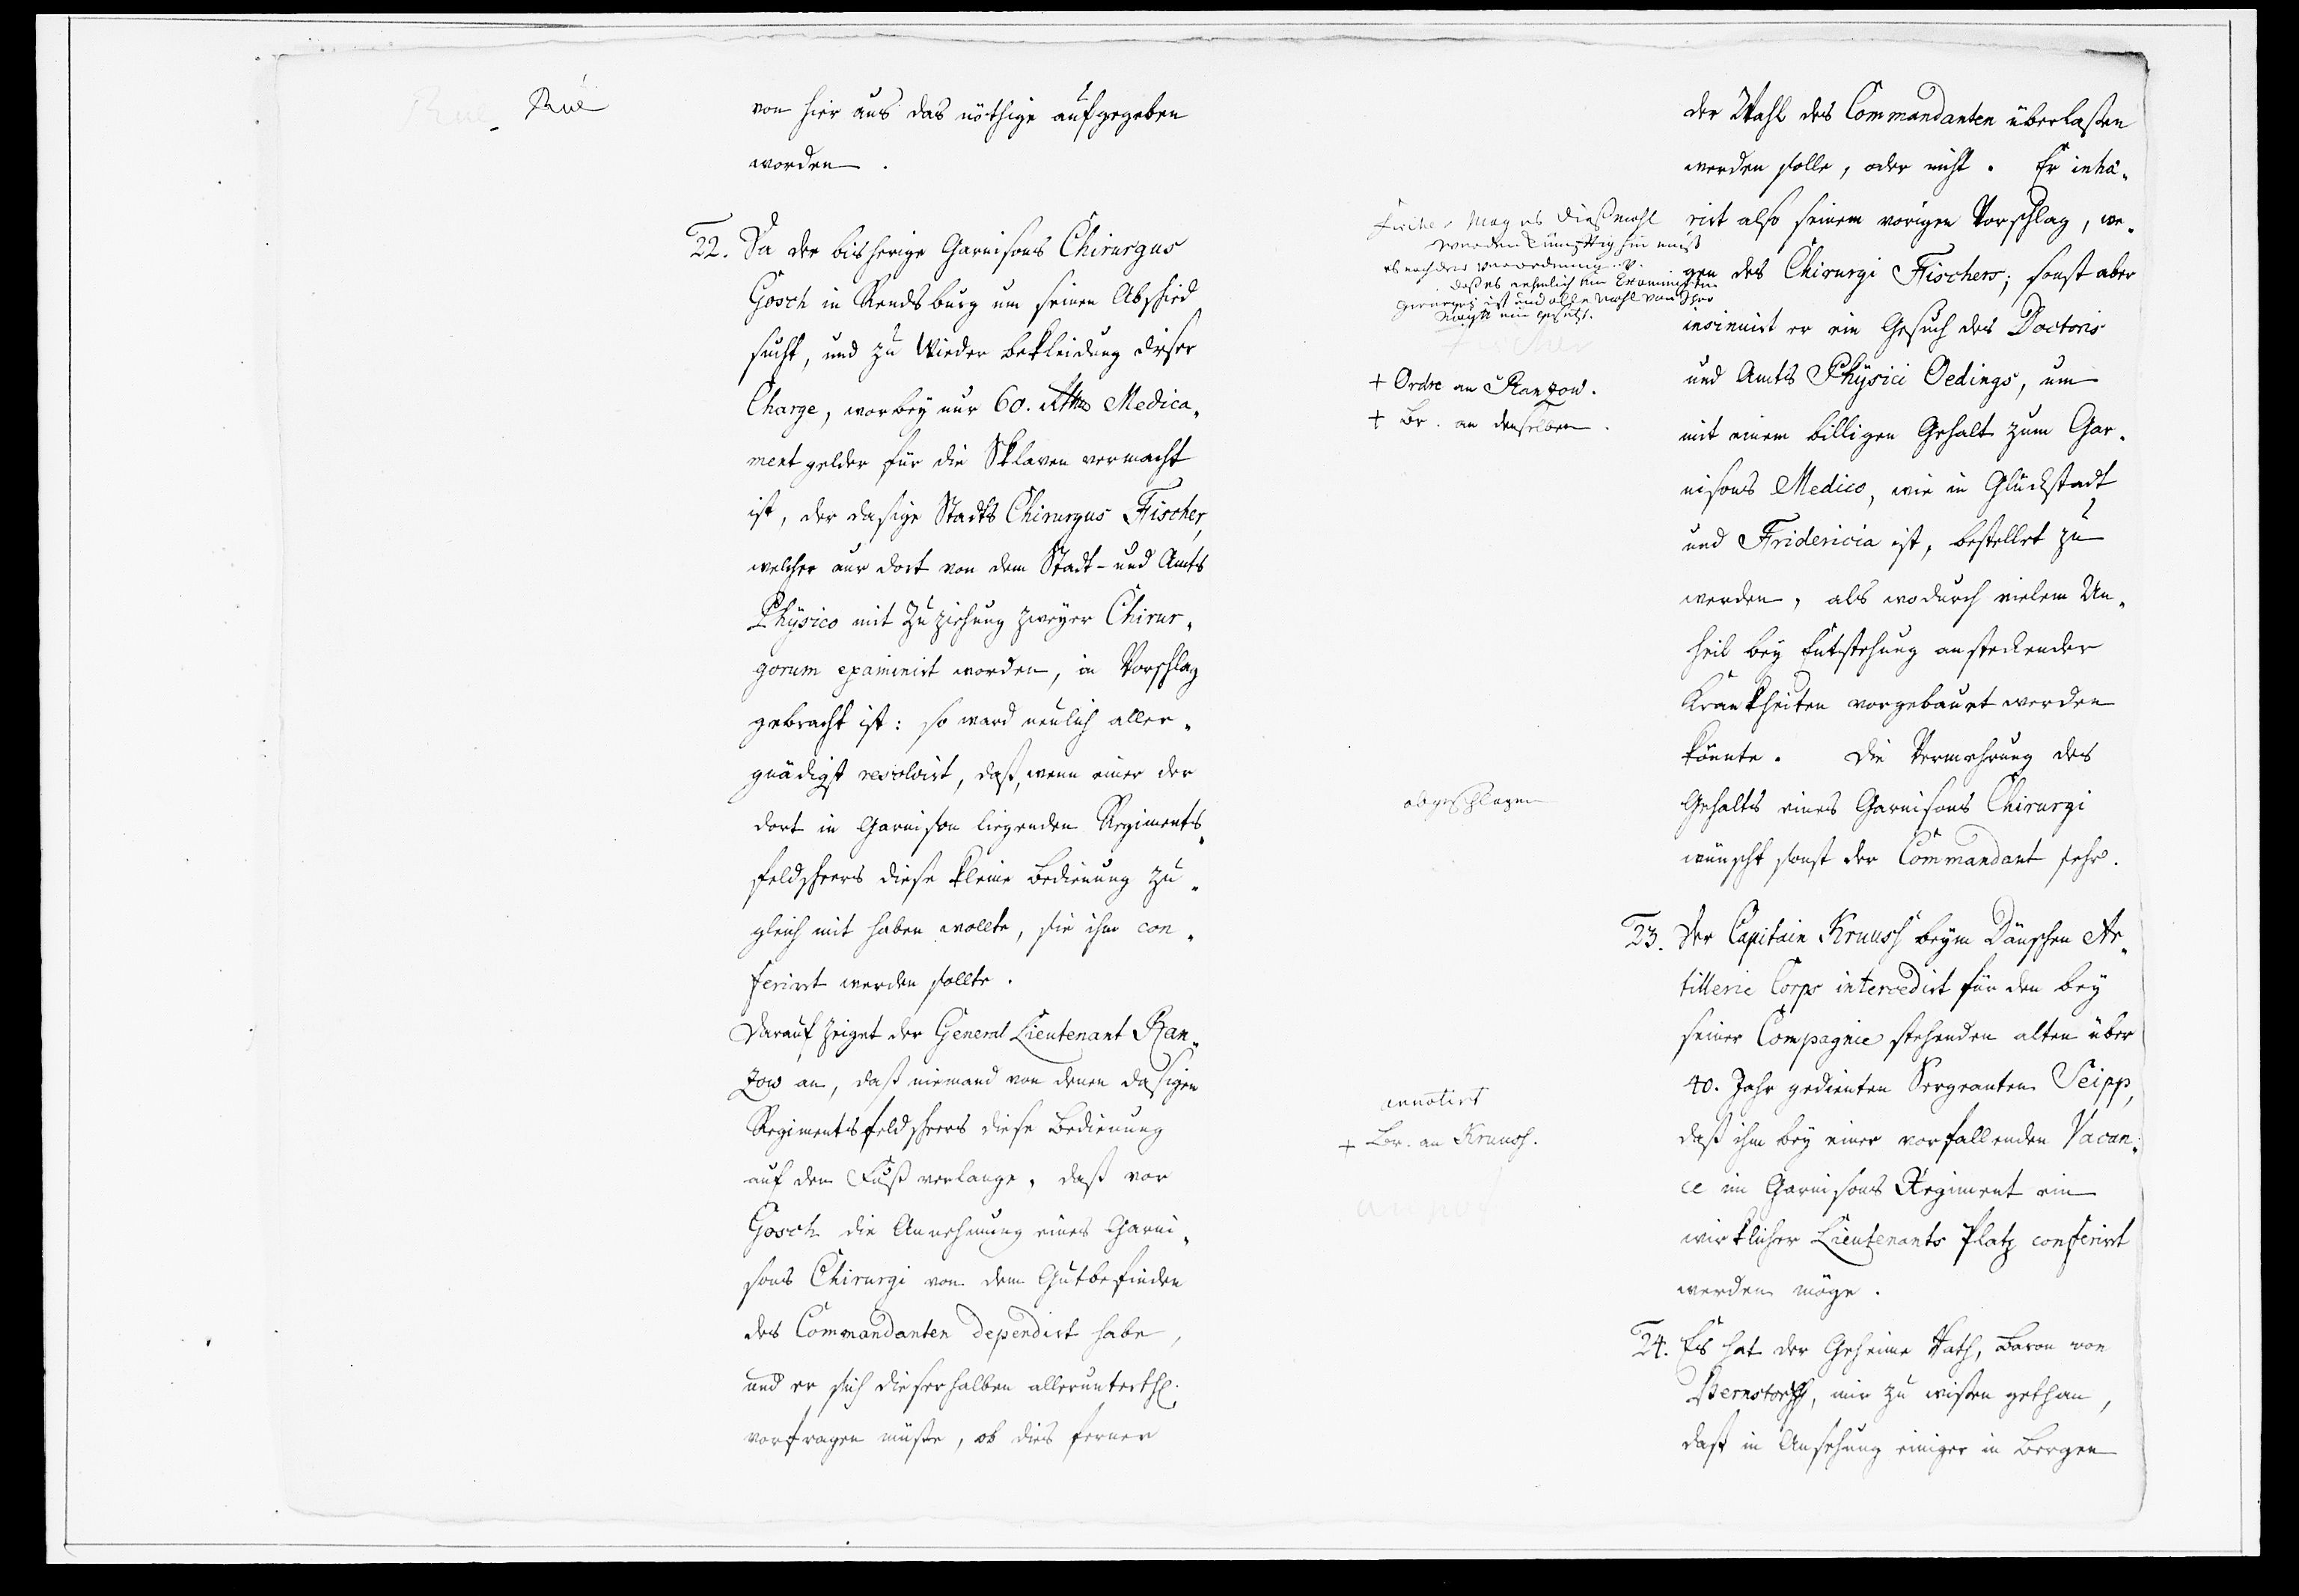 Rue
von hier aus das nöthige aufgegeben
worden.
22. Da der bisherige Garnisons Chirurgus
Gosch in Rendsburg um seinen Abschied
sucht, und zu Wieder bekleidung dieser
Charge, worbey nur 60. Rthlr Medica-
ment gelder für die Sklaven vermacht
ist, der dasige Stadts Chirurgus Fischer,
welcher nur dort von dem Stadt- und Amts
Physico mit Zuziehung zweyer Chirur-
gorum examinirt worden, in Vorschlag
gebracht ist: so ward neulich aller-
gnädigst resolvirt, daß, wenn einer der
dort in Garnison liegenden Regiments-
feldscheers diese kleine Bedienung zu-
gleich mit haben wollte, sie ihm con-
ferirt werden sollte.
Darauf zeiget der General Lieutenant Ran-
zow an, daß niemand von denen dasigen
Regimentsfeldscheers diese Bedienung
auf den Fuß verlange, daß vor
Gosch die Annehmung eines Garni-
sons Chirurgi von dem Gutbefinden
des Commandanten dependirt habe,
und er sich dieserhalben allerunterth.
vorfragen müßte, ob dies ferner
der Wahl des Commandanten überlaßen
werden solle, oder nicht. Er inhä-
rirt also seinem vorigen Vorschlag, we-
gen des Chirurgi Fischers; sonst aber
insinuirt er ein Gesuch des Doctoris
und Amts Physici Oedings, um
mit einem billigen Gehalt zum Gar-
nisons Medico, wie in Glückstadt
und Fridericia ist, bestellet zu
werden, als wodurch vielem Un-
heil bey Entstehung ansteckender
Krankheiten vorgebauet werden
könnte. Die Vermehrung des
Gehalts eines Garnisons Chirurgi
wünscht sonst der Commandant sehr.
Fischer Mag es dießmahl
werden künfftig hin muß
es nach der verordnung
daß es nehmlich ein Examinirter
ist und alle mahl von Ihro
Mayst ein gesetzt.
+ Ordre an Ranzow.
+ Br. an denselben.
abgeschlagen
23. Der Capitain Kruuss beym Dänschen Ar-
tillerie Corps intercedirt für den bey
seiner Compagnie stehenden alten über
40. Jahr gedienten Sergeanten Seipp,
daß ihm bey einer vorfallenden Vacan-
ce im Garnisons Regiment ein
wirklicher Lieutenants Platz conferirt
werden möge.
annotirt
+ Br. an Kruuss.
24. Es hat der Geheime Rath, Baron von
Bernstorff, mir zu wißen gethan,
daß in Ansehung einiger in Bergen